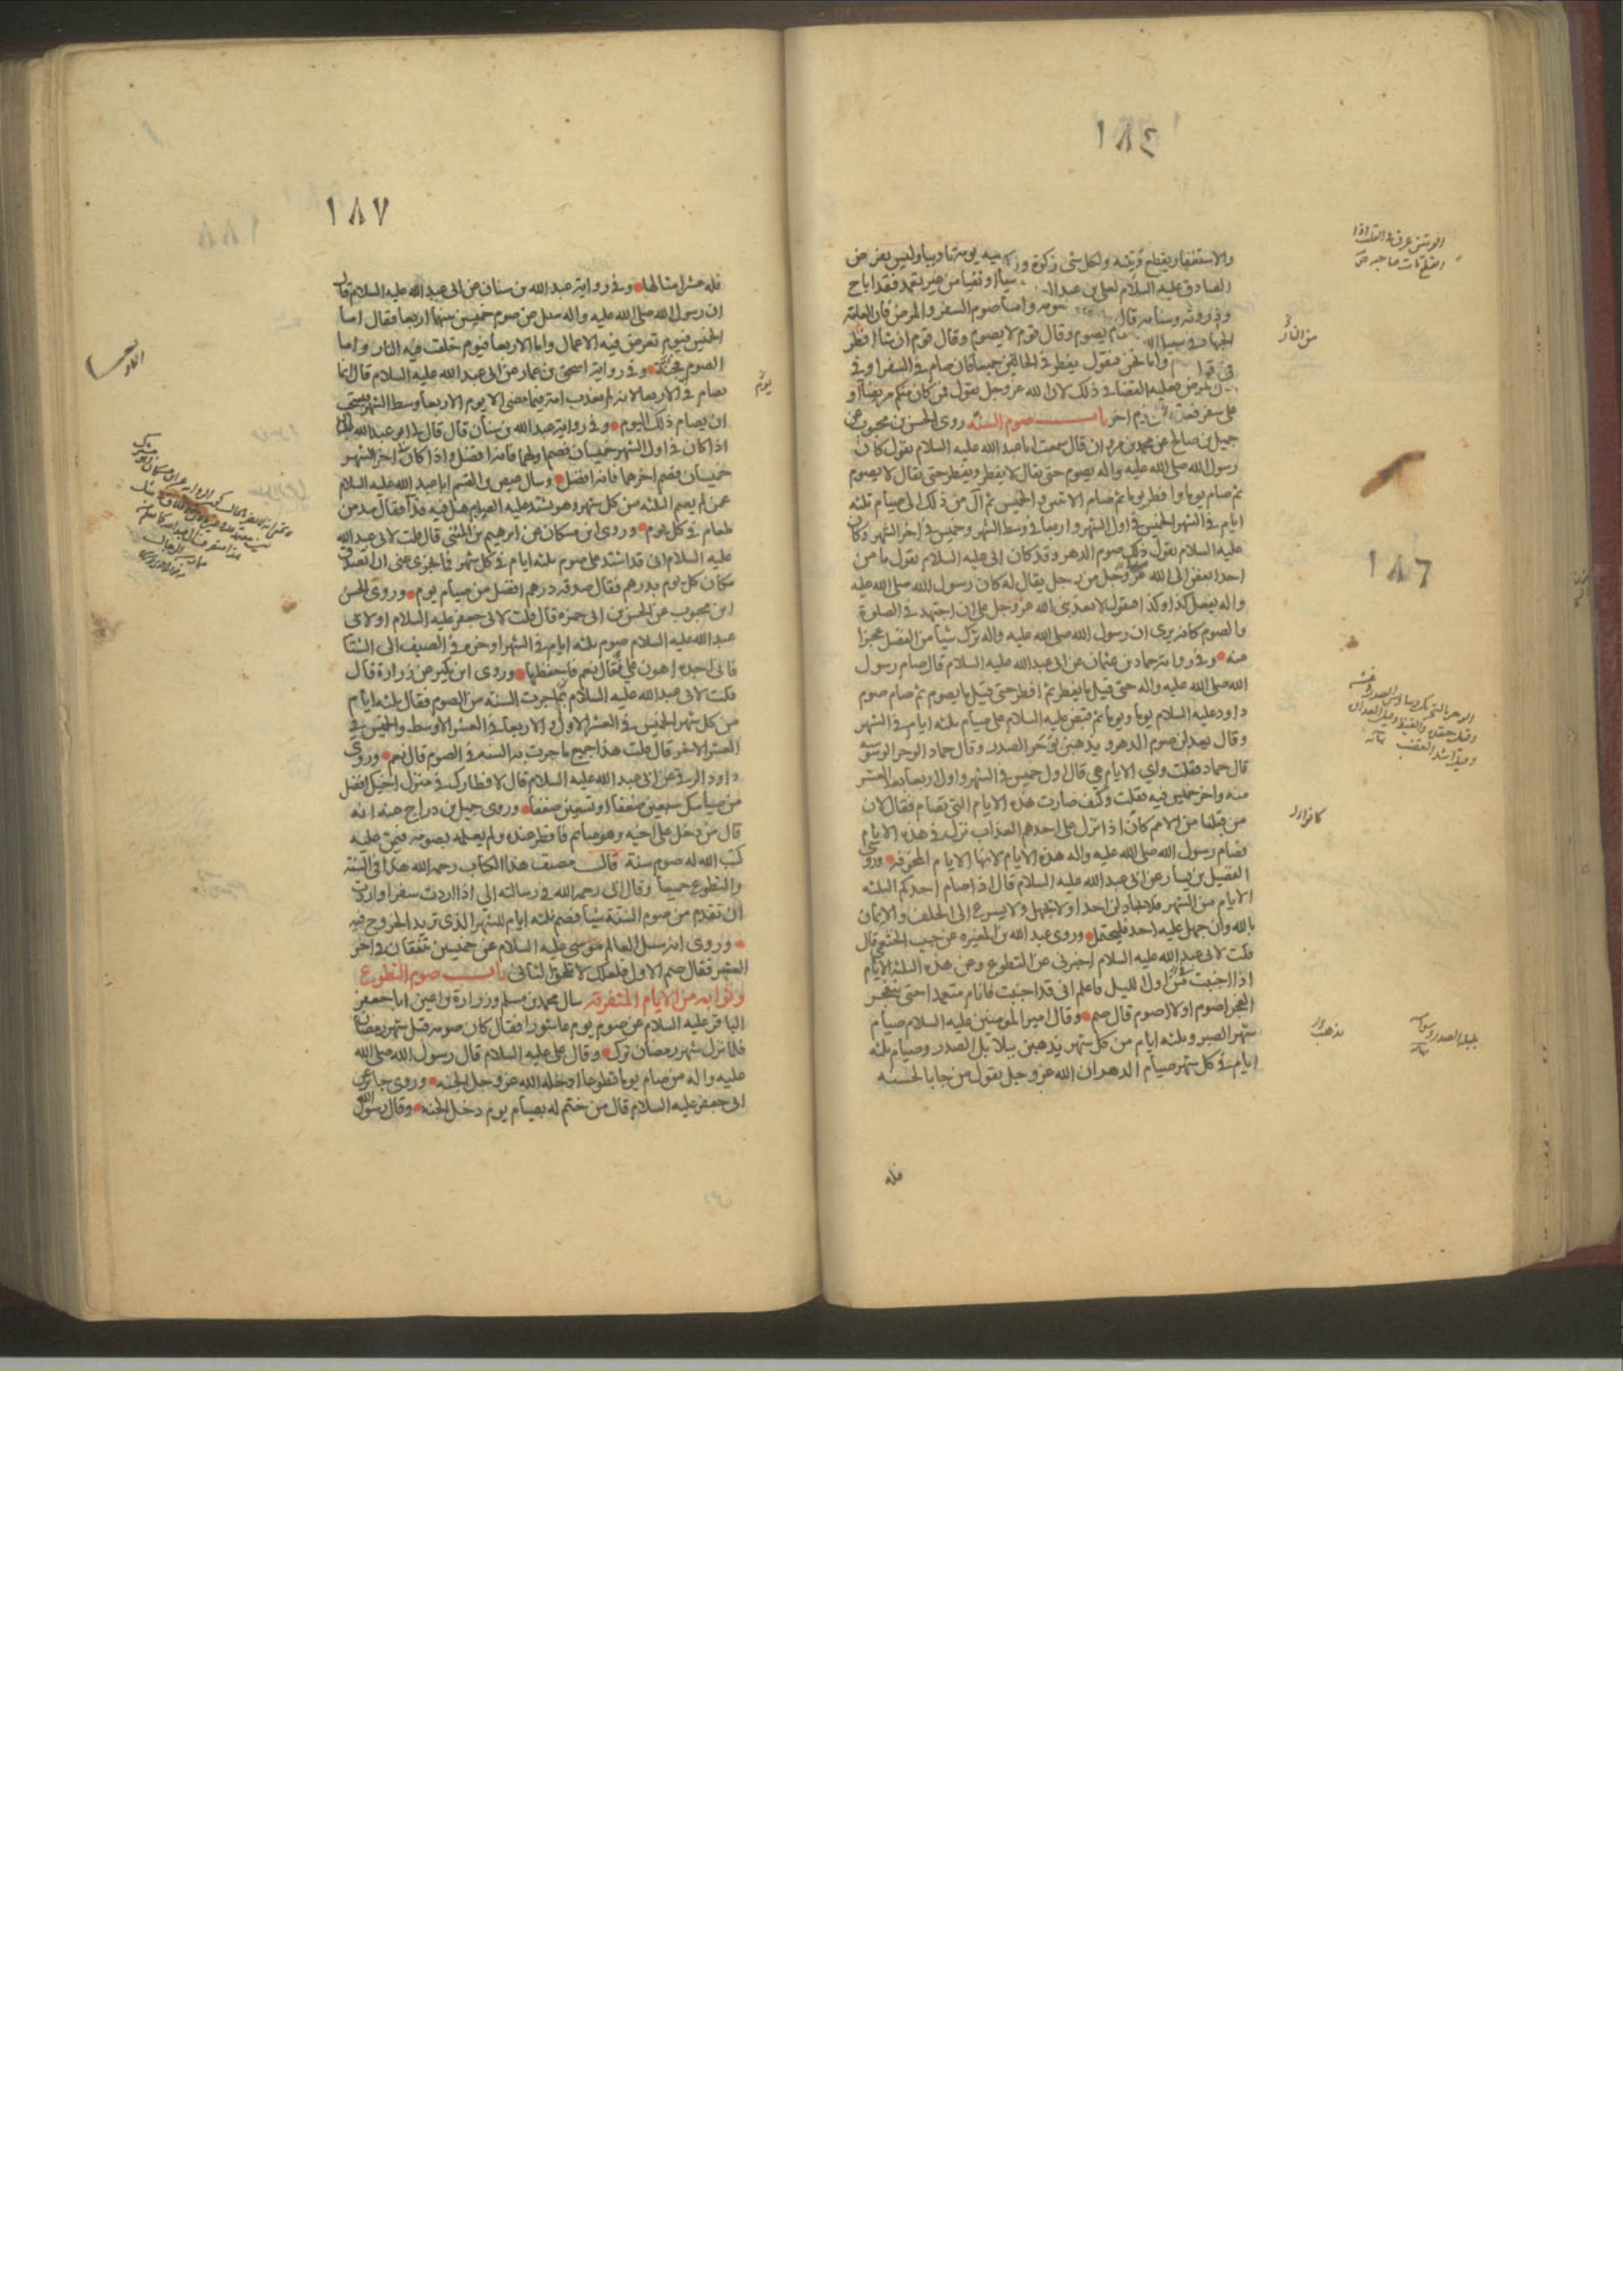 ١٨٤
والاستغفار يقطع وتينه ولكل شي زكوة وزكوة
الصادق عليه السلام لعلي بن عبد
وذروته وسنامه قال
الجهاد في سبيل الله يصوم وقال قوم لا يصوم وقال قوم ان شا افطر
واما نحن فنقول يفطر في الحالتين جميعا فان صام في السفر او في
المرض فعليه القضا في ذلك لان الله عز وجل يقول فمن كان منكم مريضا او
على سفر فعدة من ايام اخر باب صوم السنة روى الحسن بن محبوب عن
جميل بن صالح عن محمد بن مروان قال سمعت ابا عبد الله عليه السلام يقول كان
رسول الله صلى الله عليه واله يصوم حتى يقال لا يفطر ويفطر حتى يقال لا يصوم
ثم صام يوما وافطر يوما ثم صام الاثنين والخميس ثم ال من ذلك الى صيام ثلثه
ايام في الشهر الخميس في اول الشهر واربعا في وسط الشهر وخميس في اخر الشهر وكان
عليه السلام يقول ذلك صوم الدهر وقد كان ابى عليه السلام يقول ما من
احد ابغض الى الله عز وجل من رجل يقال له كان رسول الله صلى الله عليه
واله يفعل كذا وكذا فيقول لا يعذبني الله عز وجل على ان اجتهد في الصلوة
والصوم كانه يرى ان رسول الله صلى الله عليه واله ترك شيأ من الفضل عجزا
عنه وفي رواية حماد بن عثمان عن ابى عبد الله عليه السلام قال صام رسول
الله صلى الله عليه واله حتى قيل ما يفطر ثم افطر حتى قيل ما يصوم ثم صام صوم
داود عليه السلام يوما ويوما ثم قبض عليه السلام على صيام ثلثه ايام في الشهر
وقال يعدلن صوم الدهر ويذهبن بوحر الصدر وقال حماد الوحر الوسوسه
قال حماد فقلت واي الايام هي قال اول خميس في الشهر واول اربعا بعد العشر
منه واخر خميس فيه فقلت وكيف صارت هذه الايام التي تصام فقال لان
من قبلنا من الامم كان اذا نزل على احدهم العذاب نزل في هذه الايام
فصام رسول الله صلى الله عليه واله هذه الايام لانها الايام المخوفه وروى
الفضيل بن يسار عن ابى عبد الله عليه السلام قال اذا صام احدكم الثلثه
الايام من الشهر فلا يجادلن احدا ولا يجهل ولا يسرع الى الحلف والايمان
بالله وان جهل عليه احد فليحتمل وروى عبد الله بن المغيره عن حبيب الخثعمي قال
قلت لابى عبد الله عليه السلام اخبرني عن التطوع وعن هذه الثلثه الايام
اذا اجنبت من اول الليل فاعلم انى قد اجنبت فانام متعمدا حتى ينفجر
الفجر اصوم او لا اصوم قال صم وقال امير المومنين عليه السلام صيام
شهر الصبر وثلثه ايام من كل شهر يذهبن ببلابل الصدر وصيام ثلثه
ايام في كل شهر صيام الدهر ان الله عز وجل يقول من جا بالحسنه
فله
من النار
١٨٦
١٨٧
فله عشر امثالها وفي رواية عبد الله بن سنان عن ابى عبد الله عليه السلام قال
ان رسول الله صلى الله عليه واله سئل عن صوم خميسين بينهما اربعا فقال اما
الخميس فيوم تعرض فيه الاعمال واما الاربعا فيوم خلقت فيه النار واما
الصوم فجنة وفي رواية اسحق بن عمار عن ابى عبد الله عليه السلام قال انما
يصام في الاربعا لانه لم يعذب امة فيما مضى الا يوم الاربعا وسط الشهر فيستحب
ان يصام ذلك اليوم وفي رواية عبد الله بن سنان قال قال لى ابو عبد الله
اذا كان في اول الشهر خميسان فصم اولهما فانه افضل واذا كان في اخر الشهر
خميسان فصم اخرهما فانه افضل وسال عيص بن القسم ابا عبد الله عليه السلام
عمن لم يصم الثلثه من كل شهر وهو يشتد عليه الصيام هل فيه فدا فقال مد من
طعام في كل يوم وروى ابن مسكان عن ابرهيم بن المثنى قال قلت لابى عبد الله
عليه السلام انى قد اشتد على صوم ثلثه ايام في كل شهر فما يجزى عنى ان اتصدق
مكان كل يوم بدرهم فقال صدقه درهم افضل من صيام يوم وروى الحسن
ابن محبوب عن الحسن بن ابى حمزه قال قلت لابى جعفر عليه السلام او لابى
عبد الله عليه السلام صوم ثلثه ايام في الشهر اوخره في الصيف الى الشتا
فانى اجده اهون على فقال نعم فاحفظها وروى ابن بكير عن زرارة قال
قلت لابى عبد الله عليه السلام بم جرت السنة من الصوم فقال ثلثه ايام
من كل شهر الخميس في العشر الاول والاربعا في العشر الاوسط والخميس في
العشر الاخر قال قلت هذا جميع ما جرت به السنه في الصوم قال نعم وروى
داود الرقى عن ابى عبد الله عليه السلام قال لافطارك في منزل اخيك افضل
من صيامك سبعين ضعفا او تسعين ضعفا وروى جميل بن دراج عنه انه
قال من دخل على اخيه وهو صايم فافطر عنده ولم يعلمه بصومه فيمن عليه
كتب الله له صوم سنة قال مصنف هذا الكتاب رحمه الله هذا في السنة
والتطوع جميعا وقال ابى رحمه الله في رسالته الى اذا اردت سفرا واردت
ان تقدم من صوم السنة شيأ فصم ثلثه ايام للشهر الذى تريد الخروج فيه
وروى انه سئل العالم موسى عليه السلام عن خميسين يتفقان في اخر
العشر فقال صم الاول فلعلك لا تلحق الثانى باب صوم التطوع
وثوابه من الايام المتفرقه سال محمد بن مسلم وزرارة بن اعين ابا جعفر
الباقر عليه السلام عن صوم يوم عاشورا فقال كان صومه قبل شهر رمضان
فلما نزل شهر رمضان ترك وقال على عليه السلام قال رسول الله صلى الله
عليه واله من صام يوما تطوعا ادخله الله عز وجل الجنه وروى جابر عن
ابى جعفر عليه السلام قال من ختم له بصيام يوم دخل الجنه وقال رسول الله